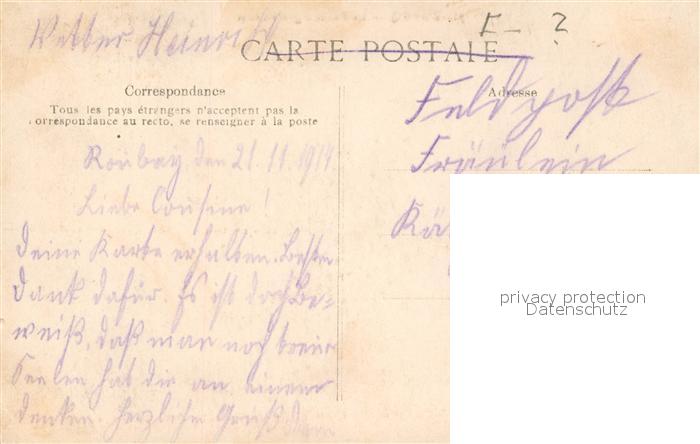 Vetter Heinrich
E- ?
CARTE POSTALE
Correspondance
Tous les pays étrangers n'acceptent pas la
correspondance au recto, se renseigner à la poste
Adresse
Feldpost
Fräulein
Kä
Roubaix, den 21.11.1914
Liebe Cousine!
Deine Karte erhalten. Besten
Dank dafür. Es ist doch Be-
weiß, daß man noch
Seelen hat die an einem
denken. Herzliche Gruß Dein
privacy protection
Datenschutz